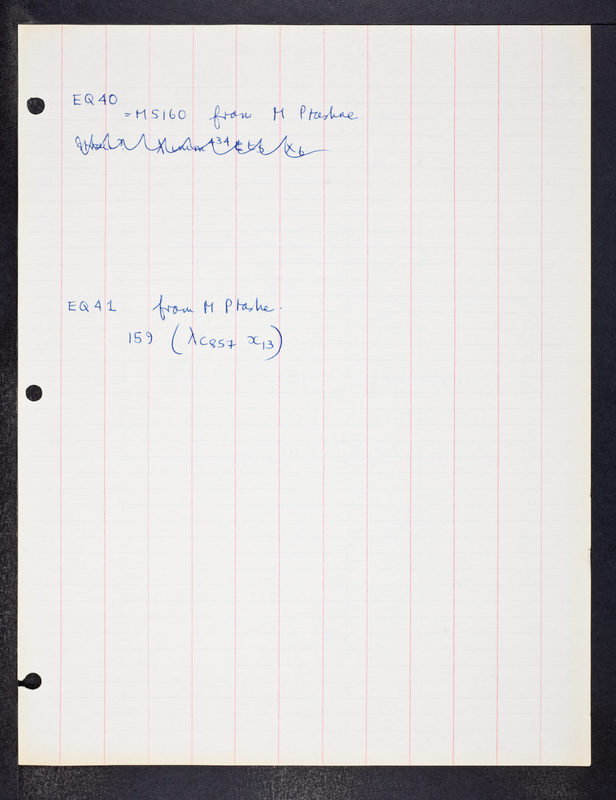 EQ40
= M5160 from M Ptashne
434
EQ41 from M Ptashe.
159 (λC857 x13)